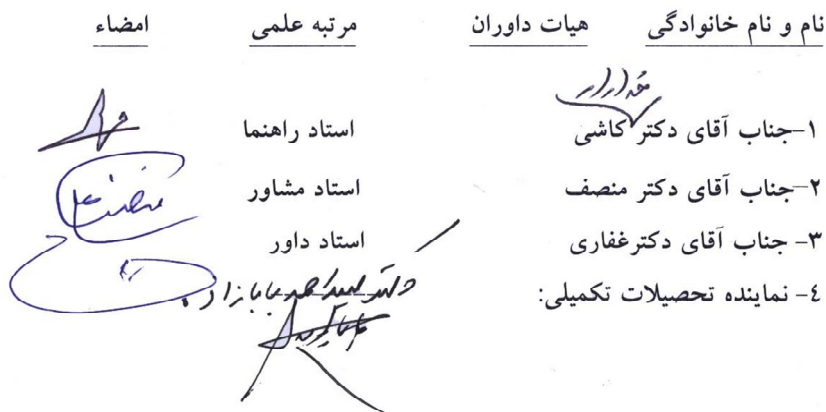 نام و نام خانوادگی هیات داوران مرتبه علمی امضاء
۱-جناب آقای دکتر کاشی استاد راهنما
۲-جناب آقای دکتر منصف استاد مشاور
۳- جناب آقای دکترغفاری استاد داور
٤- نماینده تحصیلات تکمیلی: دکتر